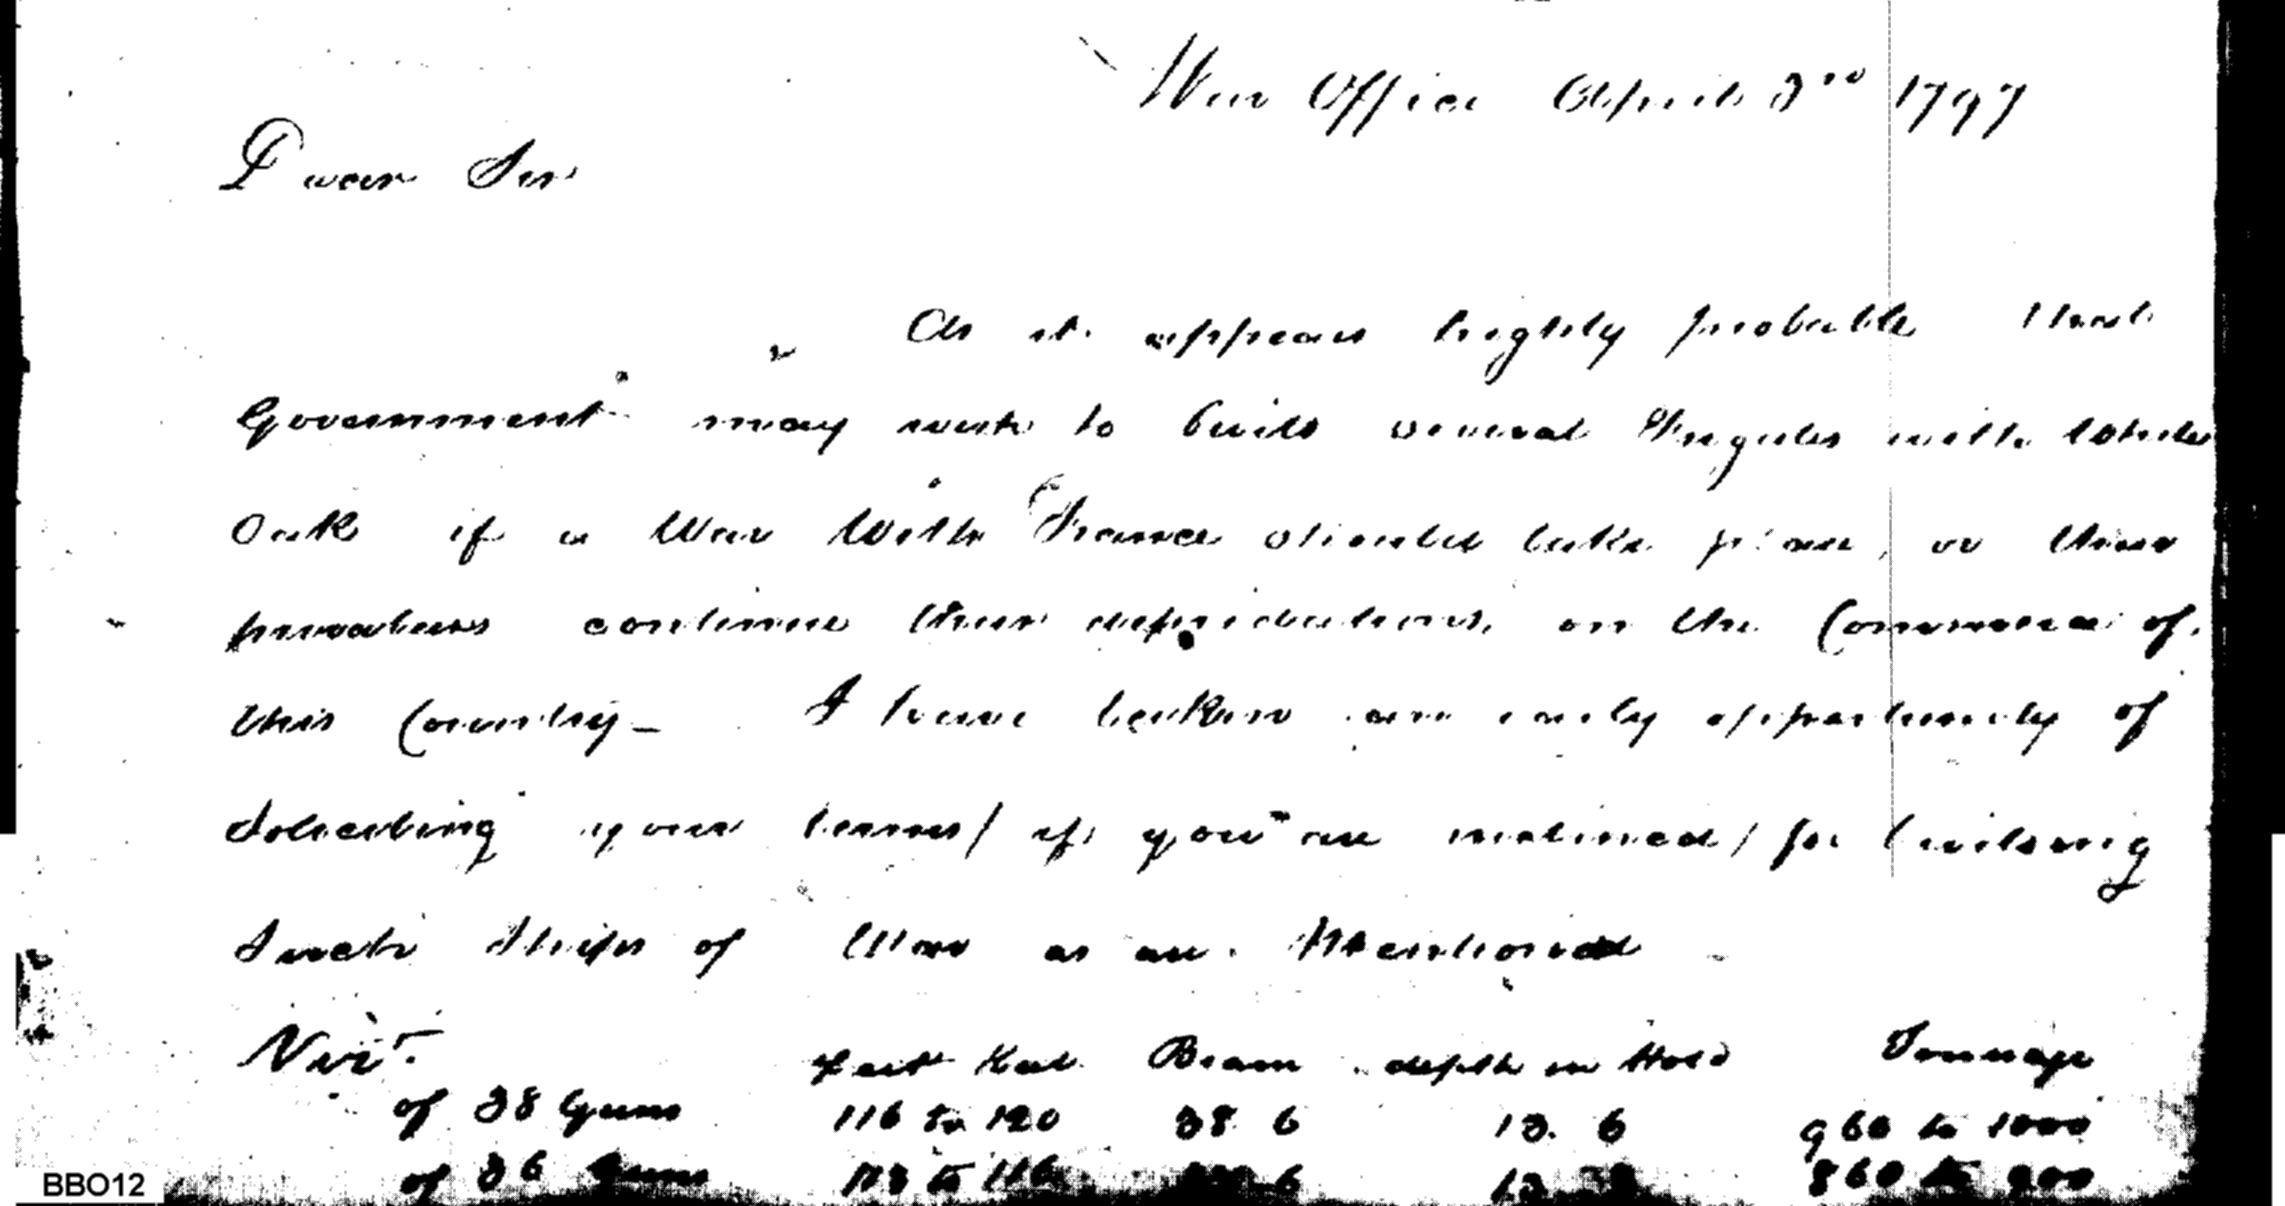 War Office April 3rd 1797
Dear Sir
As it appears highly probable that
Government may wish to build several Frigates with White
Oak if a War With France should take place, or their
privateers continue their depredations, on the Commerce of
this Country_ I have taken an early opportunity of
Soliciting your terms/ if you are inclined/ for building
Such Ships of War as are Mentioned
Vizt.
feet Keel Beam depth in Hold Tonnage
of 38 Guns 116 to 120 38. 6 13. 6 960 to 1000
of 36 Guns 113 to 116 6 13 860 to 900
BBO12